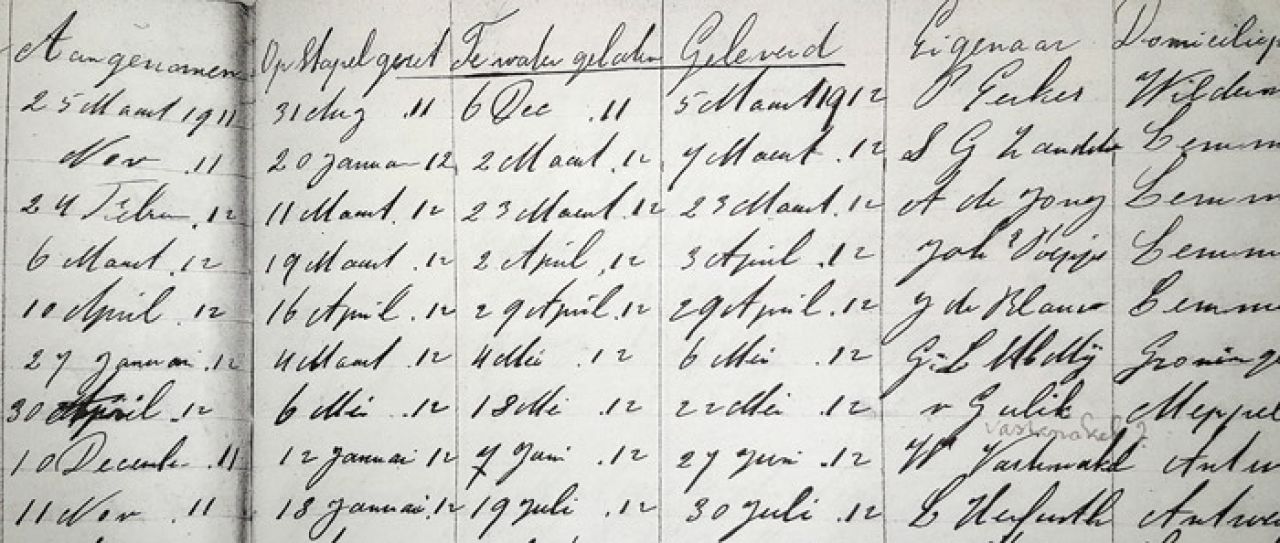 Aangenomen Op Stapel gezet Te water gelaten Geleverd Eigenaar Domicilie
25 Maart 1911 31 Aug .11 6 Dec .11 5 Maart 1912 P
Nov .11 20 Januar 12 2 Maart .12 7 Maart .12 S G Lemm
24 Febru .12 11 Maart .12 23 Maart .12 23 Maart .12 A de Jong Lemm
6 Maart .12 19 Maart .12 2 April .12 3 April .12 Joh Lemm
10 April .12 16 April .12 29 April .12 29 April .12 J de Blauw Lemm
27 Januari .12 4 Maart .12 4 Mei .12 6 Mei .12 G.L Groning
30 April .12 6 Mei .12 18 Mei .12 22 Mei .12 v Gulik Meppel
10 Decemb .11 12 Januari 12 7 Juni .12 27 Juni .12 W Antw
11 Nov .11 18 Januari .12 19 Juli .12 30 Juli .12 L Antwe